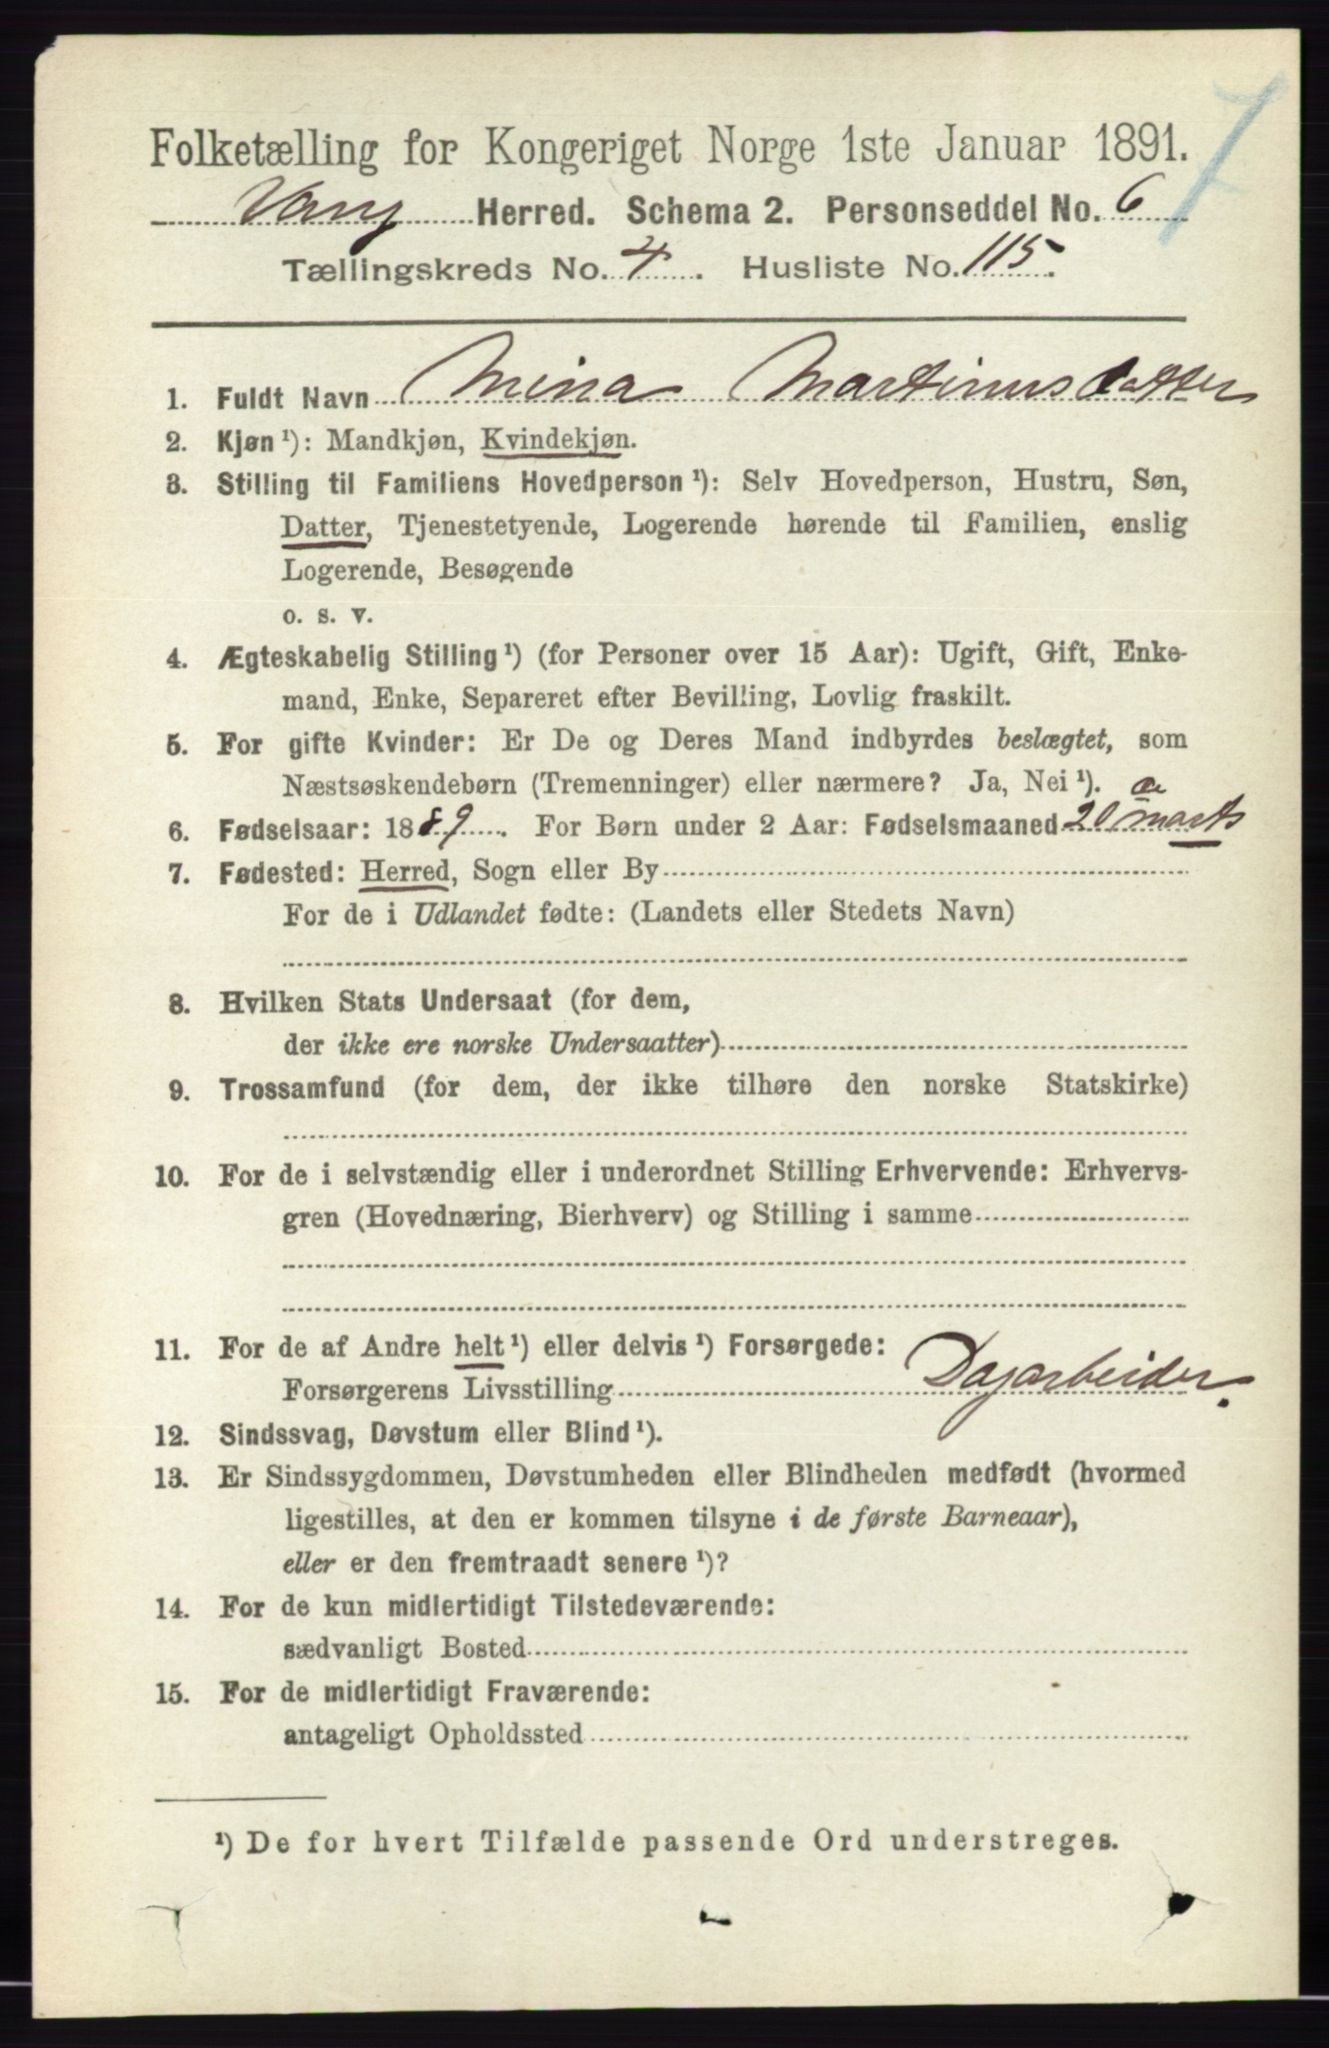 7
Folketælling for Kongeriget Norge 1ste Januar 1891.
Vang Herred. Schema 2. Personseddel No. 6
Tællingskreds No. 4. Husliste No. 115.
1. Fuldt Navn Mina Martinusdatter
2. Kjøn¹): Mandkjøn, Kvindekjøn.
3. Stilling til Familiens Hovedperson¹): Selv Hovedperson, Hustru, Søn,
Datter, Tjenestetyende, Logerende hørende til Familien, enslig
Logerende, Besøgende
o. s. v.
4. Ægteskabelig Stilling¹) (for Personer over 15 Aar): Ugift, Gift, Enke-
mand, Enke, Separeret efter Bevilling, Lovlig fraskilt.
5. For gifte Kvinder: Er De og Deres Mand indbyrdes beslægtet, som
Næstsøskendebørn (Tremenninger) eller nærmere? Ja, Nei¹).
6. Fødselsaar: 1889. For Børn under 2 Aar: Fødselsmaaned 20 marts
7. Fødested: Herred, Sogn eller By
For de i Udlandet fødte: (Landets eller Stedets Navn)
8. Hvilken Stats Undersaat (for dem,
der ikke ere norske Undersaatter)
9. Trossamfund (for dem, der ikke tilhøre den norske Statskirke)
10. For de i selvstændig eller i underordnet Stilling Erhvervende: Erhvervs-
gren (Hovednæring, Bierhverv) og Stilling i samme
11. For de af Andre helt¹) eller delvis¹) Forsørgede:
Forsørgerens Livsstilling Dagarbeider.
12. Sindssvag, Døvstum eller Blind¹).
13. Er Sindssygdommen, Døvstumheden eller Blindheden medfødt (hvormed
ligestilles, at den er kommen tilsyne i de første Barneaar),
eller er den fremtraadt senere¹)?
14. For de kun midlertidigt Tilstedeværende:
sædvanligt Bosted
15. For de midlertidigt Fraværende:
antageligt Opholdssted
¹) De for hvert Tilfælde passende Ord understreges.